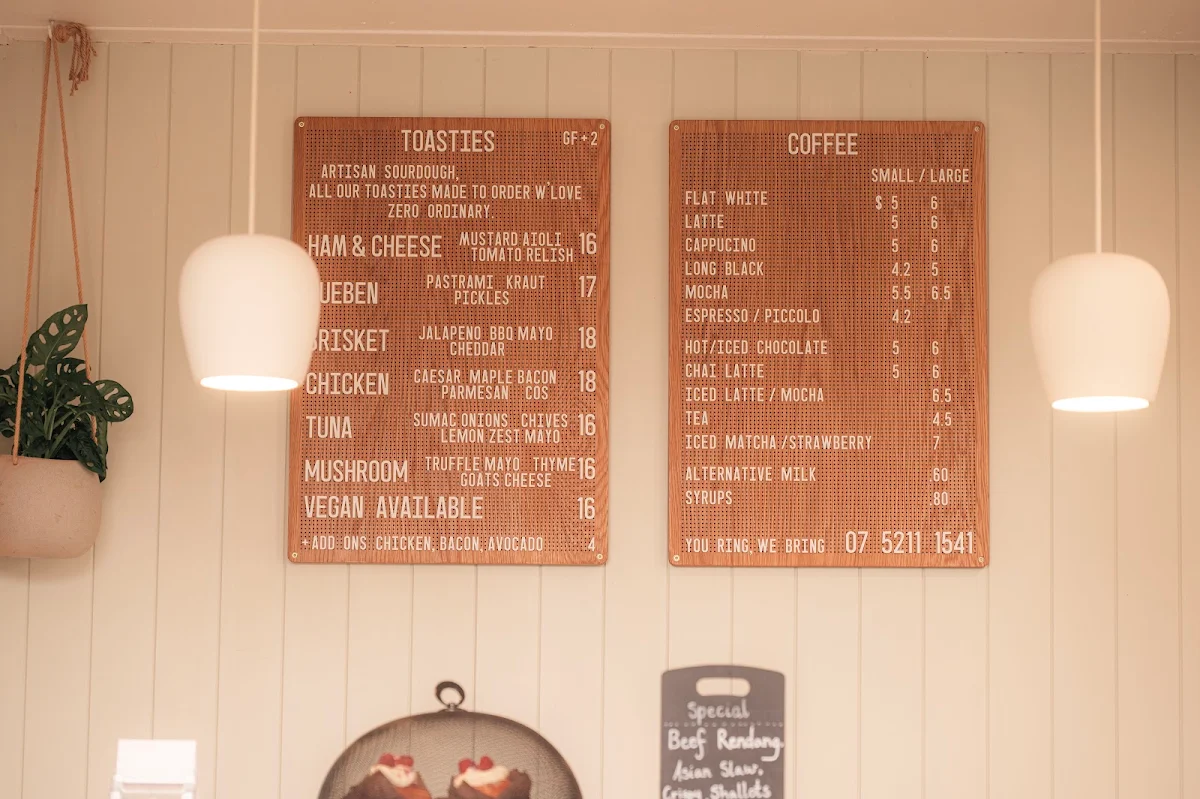 TOASTIES GF+2
ARTISAN SOURDOUGH,
ALL OUR TOASTIES MADE TO ORDER W'LOVE
ZERO ORDINARY.
HAM & CHEESE MUSTARD AIOLI 16
TOMATO RELISH
UEBEN PASTRAMI KRAUT 17
PICKLES
BRISKET JALAPENO BBQ MAYO 18
CHEDDAR
CHICKEN CAESAR MAPLE BACON 18
PARMESAN COS
TUNA SUMAC ONIONS CHIVES 16
LEMON ZEST MAYO
MUSHROOM TRUFFLE MAYO THYME 16
GOATS CHEESE
VEGAN AVAILABLE 16
+ADD ONS CHICKEN, BACON, AVOCADO 4
COFFEE
SMALL / LARGE
FLAT WHITE $ 5 6
LATTE 5 6
CAPPUCINO 5 6
LONG BLACK 4.2 5
MOCHA 5.5 6.5
ESPRESSO / PICCOLO 4.2
HOT/ICED CHOCOLATE 5 6
CHAI LATTE 5 6
ICED LATTE / MOCHA 6.5
TEA 4.5
ICED MATCHA /STRAWBERRY 7
ALTERNATIVE MILK .60
SYRUPS .80
YOU RING, WE BRING 07 5211 1541
Special
Beef Rendang.
Asian Slaw.
Crispy Shallots